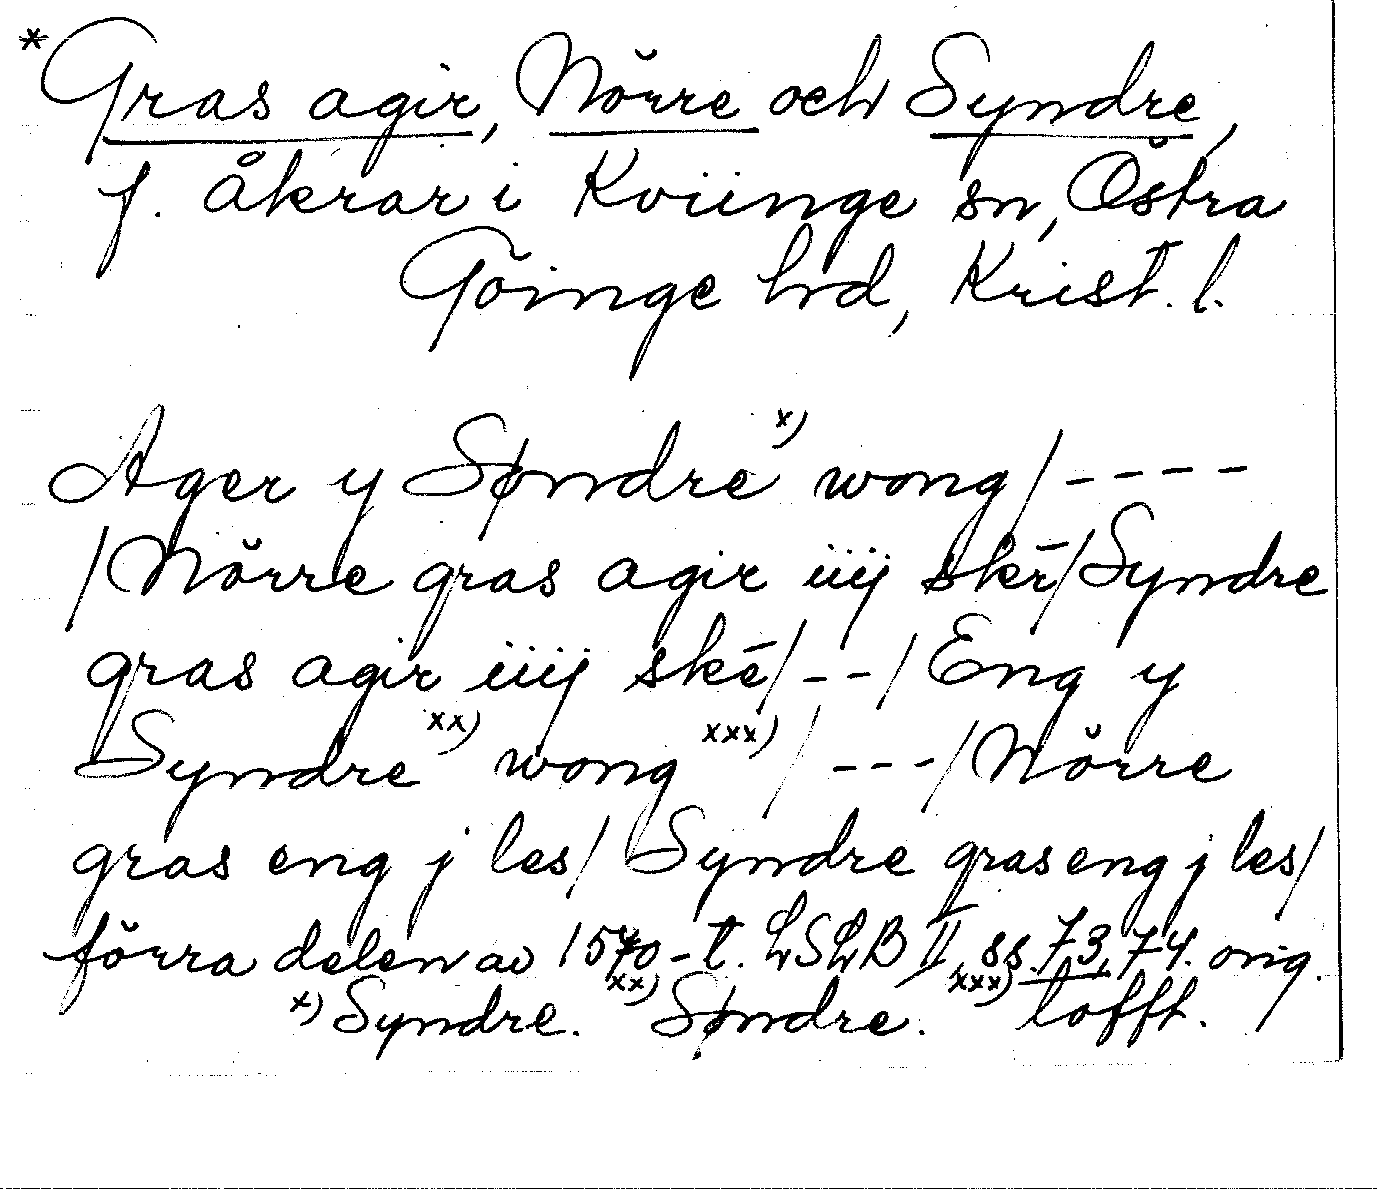 *Gras agir, Nörre och Syndre,
f. åkrar i Kviinge sn, Östra
Göinge hrd, Krist. l.
Ager y Søndre x) wong/----
/Nörre gras agir iiij skē/Syndre
gras agir iiij skē/--/Eng y
Syndre xx) wong xxx) /---/Nörre
gras eng j les/ Syndre gras eng j les/
förra delen av 1570-t. LSLB II, ss. 73, 74. orig.
x) Syndre. xx) Søndre. xxx) lofft.